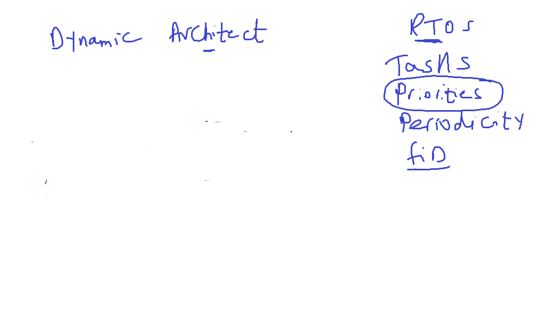 Dynamic Architect
RTOS
Tasks
Priorities
Periodicity
fiD